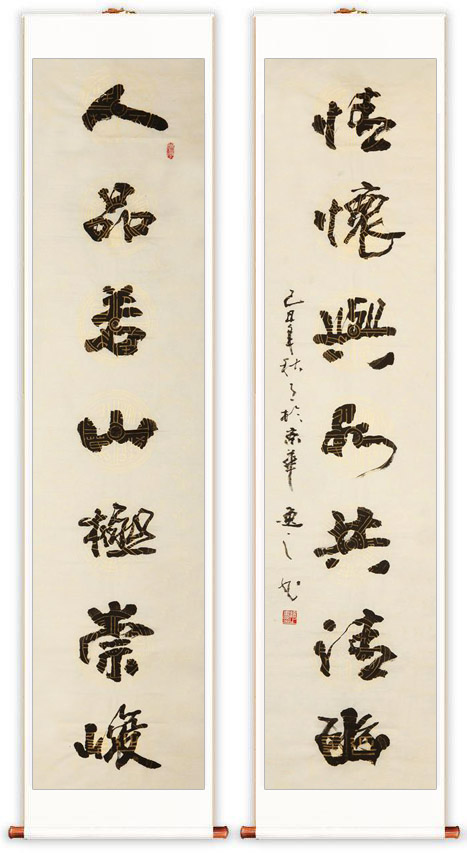 人品若山極崇峻
情懷與水共清幽
己丑年秋月於京華